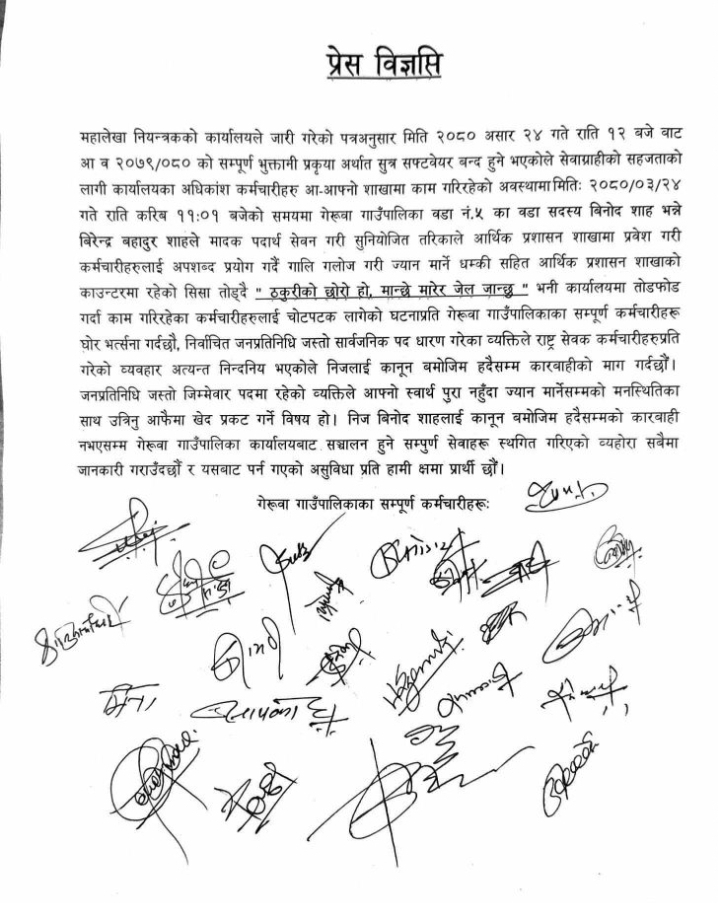 प्रेस विज्ञप्ति
महालेखा नियन्त्रकको कार्यालयले जारी गरेको पत्रअनुसार मिति २०८० असार २४ गते राति १२ बजे बाट
आ व २०७९/०८० को सम्पूर्ण भुक्तानी प्रकृया अर्थात सुत्र सफ्टवेयर बन्द हुने भएकोले सेवाग्राहीको सहजताको
लागी कार्यालयका अधिकांश कर्मचारीहरु आ-आफ्नो शाखामा काम गरिरहेको अवस्थामा मितिः २०८०/०३/२४
गते राति करिब ११:०१ बजेको समयमा गेरूवा गाउँपालिका वडा नं.५ का वडा सदस्य बिनोद शाह भन्ने
बिरेन्द्र बहादुर शाहले मादक पदार्थ सेवन गरी सुनियोजित तरिकाले आर्थिक प्रशासन शाखामा प्रवेश गरी
कर्मचारीहरुलाई अपशब्द प्रयोग गर्दै गालि गलोज गरी ज्यान मार्ने धम्की सहित आर्थिक प्रशासन शाखाको
काउन्टरमा रहेको सिसा तोड्दै " ठकुरीको छोरो हो, मान्छे मारेर जेल जान्छु " भनी कार्यालयमा तोडफोड
गर्दा काम गरिरहेका कर्मचारीहरुलाई चोटपटक लागेको घटनाप्रति गेरूवा गाउँपालिकाका सम्पूर्ण कर्मचारीहरू
घोर भर्त्सना गर्दछौ, निर्वाचित जनप्रतिनिधि जस्तो सार्वजनिक पद धारण गरेका व्यक्तिले राष्ट्र सेवक कर्मचारीहरुप्रति
गरेको व्यवहार अत्यन्त निन्दनिय भएकोले निजलाई कानून बमोजिम हदैसम्म कारबाहीको माग गर्दछौं।
जनप्रतिनिधि जस्तो जिम्मेवार पदमा रहेको व्यक्तिले आफ्नो स्वार्थ पुरा नहुँदा ज्यान मार्नेसम्मको मनस्थितिका
साथ उत्रिनु आफैमा खेद प्रकट गर्ने विषय हो। निज बिनोद शाहलाई कानून बमोजिम हदैसम्मको कारबाही
नभएसम्म गेरूवा गाउँपालिका कार्यालयबाट सञ्चालन हुने सम्पुर्ण सेवाहरू स्थगित गरिएको व्यहोरा सबैमा
जानकारी गराउँदछौं र यसबाट पर्न गएको असुबिधा प्रति हामी क्षमा प्रार्थी छौं।
गेरूवा गाउँपालिकाका सम्पूर्ण कर्मचारीहरूः